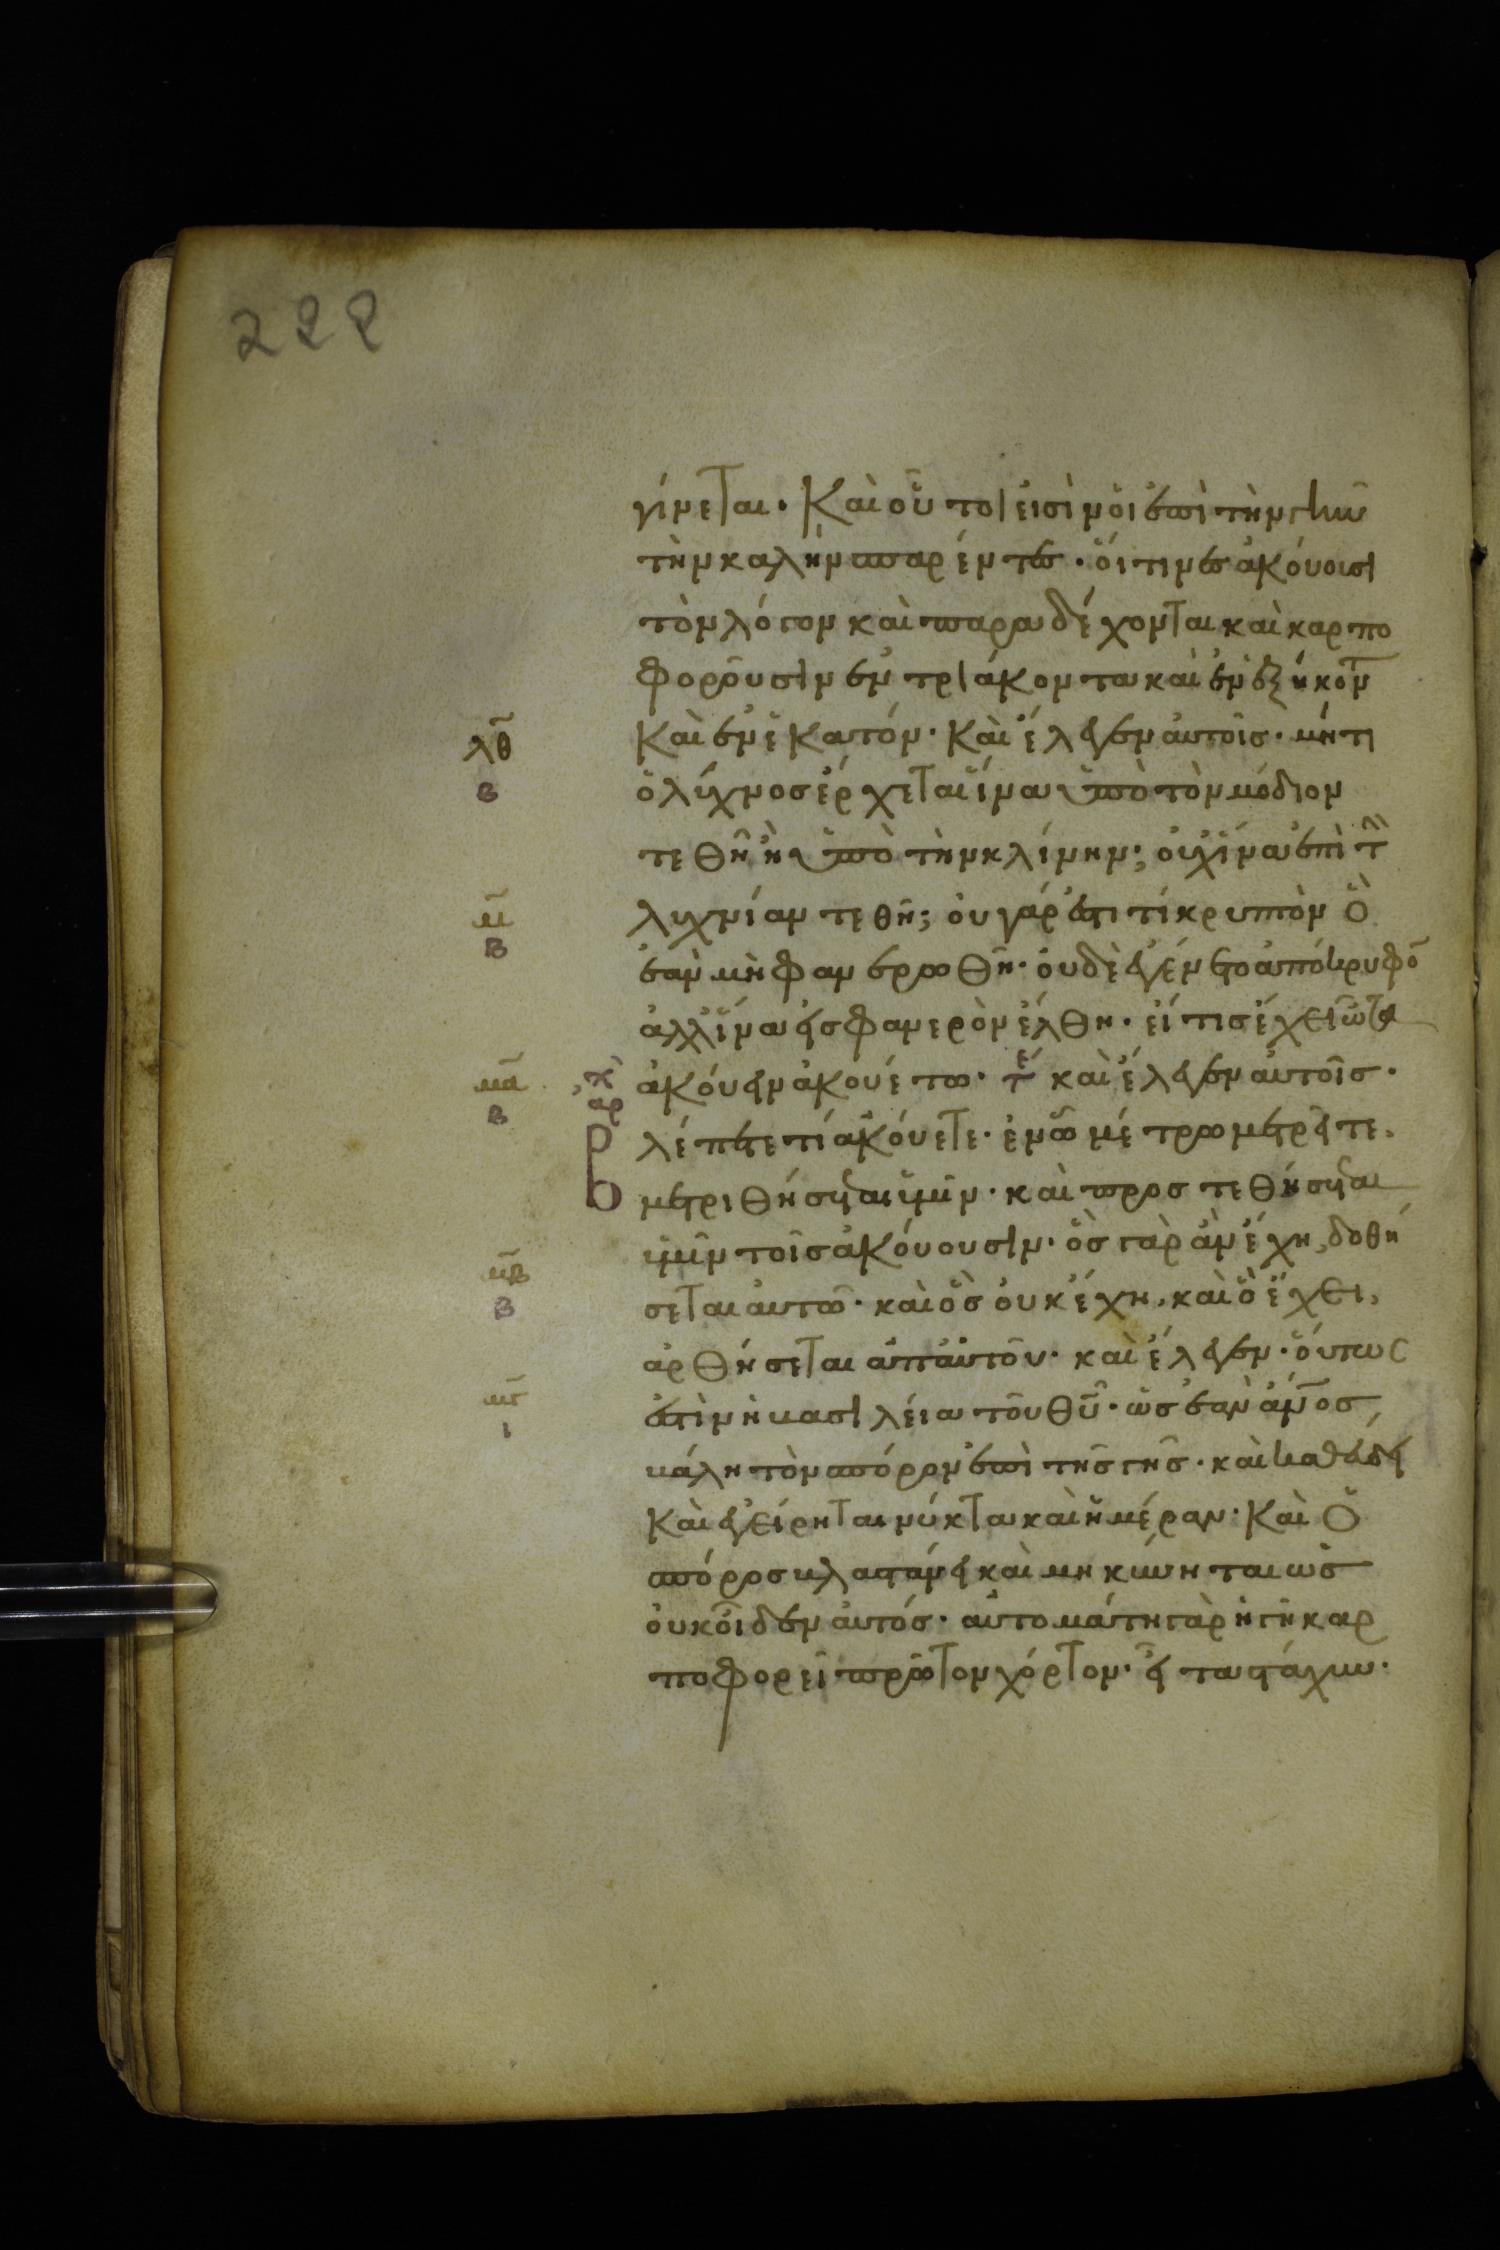 222
γίνεται· Καὶ οὗτοι εἰσὶν οἱ ἐπὶ τὴν γῆν
τὴν καλὴν σπαρέντες· οἵτινες ἀκούουσι
τὸν λόγον καὶ παραδέχονται καὶ καρπο
φοροῦσιν ἐν τριάκοντα καὶ ἐν ἑξήκοντ
λθ Καὶ ἐν ἑκατόν· Καὶ ἔλεγεν αὐτοῖς· μήτι
β ὁ λύχνος ἔρχεται ἵνα ὑπὸ τὸν μόδιον
τεθῆ ἢ ὑπὸ τὴν κλίνην; οὐχ ἵνα ἐπὶ τ
μ λυχνίαν τεθῆ; οὐ γάρ ἐστι τί κρυπτὸν ὃ
β ἐὰν μὴ φανερωθῆ· οὐδὲ ἐγένετο ἀπόκρυφο
ἀλλ' ἵνα εἰς φανερὸν ἔλθη· εἴ τις ἔχει ὦτα
μα ἀκούειν ἀκουέτω· τε καὶ ἔλεγεν αὐτοῖς·
β αρ Βλέπετε τί ἀκούετε· ἐν ὧ μέτρω μετρεῖτε,
μετριθήσεται ὑμῖν· καὶ προστεθήσεται
μβ ὑμῖν τοῖς ἀκούουσιν· ὃς γὰρ ἂν ἔχη, δοθή
β σεται αὐτῶ· καὶ ὃς οὐκ ἔχη, καὶ ὃ ἔχει,
ἀρθήσεται ἀπ' αὐτοῦ· καὶ ἔλεγεν· οὕτως
μγ ἐστὶν ἡ βασιλεία τοῦ θυ· ὡς ἐὰν ανος
ι βάλη τὸν σπόρον ἐπὶ τῆς γῆς· καὶ καθεύδει
Καὶ ἐγείρηται νύκτα καὶ ἡμέραν· Καὶ ὁ
σπόρος βλαστάνει καὶ μηκύνηται ὡς
οὐκ οἶδεν αὐτός· αὐτομάτη γὰρ ἡ γῆ καρ
ποφορεῖ πρῶτον χόρτον· εἶτα στάχυν·